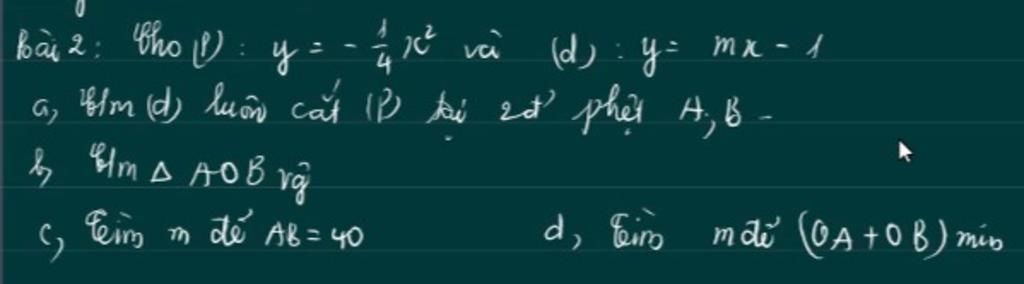 Bài 2: Cho (P): y = -1/4 x² và (d): y = mx - 1
a, C/m (d) luôn cắt (P) tại 2đ' phệt A, B -
b, C/m △ AOB vg
c, Tìm m để AB = 40 d, Tìm m để (OA + OB) min